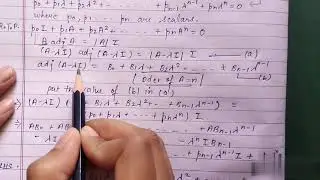 p₀ + p₁λ + p₂λ² + - - - - pₙ₋₁λⁿ⁻¹ +
where p₀, p₁ - - - pₙ are scalars.
p₀I + p₁A + p₂A² + - - - - pₙAⁿ = 0
B adj A = |A| I
(A-λI) adj (A-λI) = |A-λI| I — (a)
adj (A-λI) = B₀ + B₁λ + B₂λ² - - - - + Bₙ₋₁λⁿ⁻¹
(b)
[oder of A = n]
put the value of (b) in (a)
⇒ (A-λI) (B₀ + B₁λ + B₂λ² + - - - Bₙ₋₁λⁿ⁻¹)
= (p₀ + p₁λ + - - - pₙλⁿ) I
AB₀ + AB₁ + ABₙ₋₁λⁿ⁻¹
- λⁿ I Bₙ₋₁
+ pₙ₋₁λⁿ⁻¹ I +